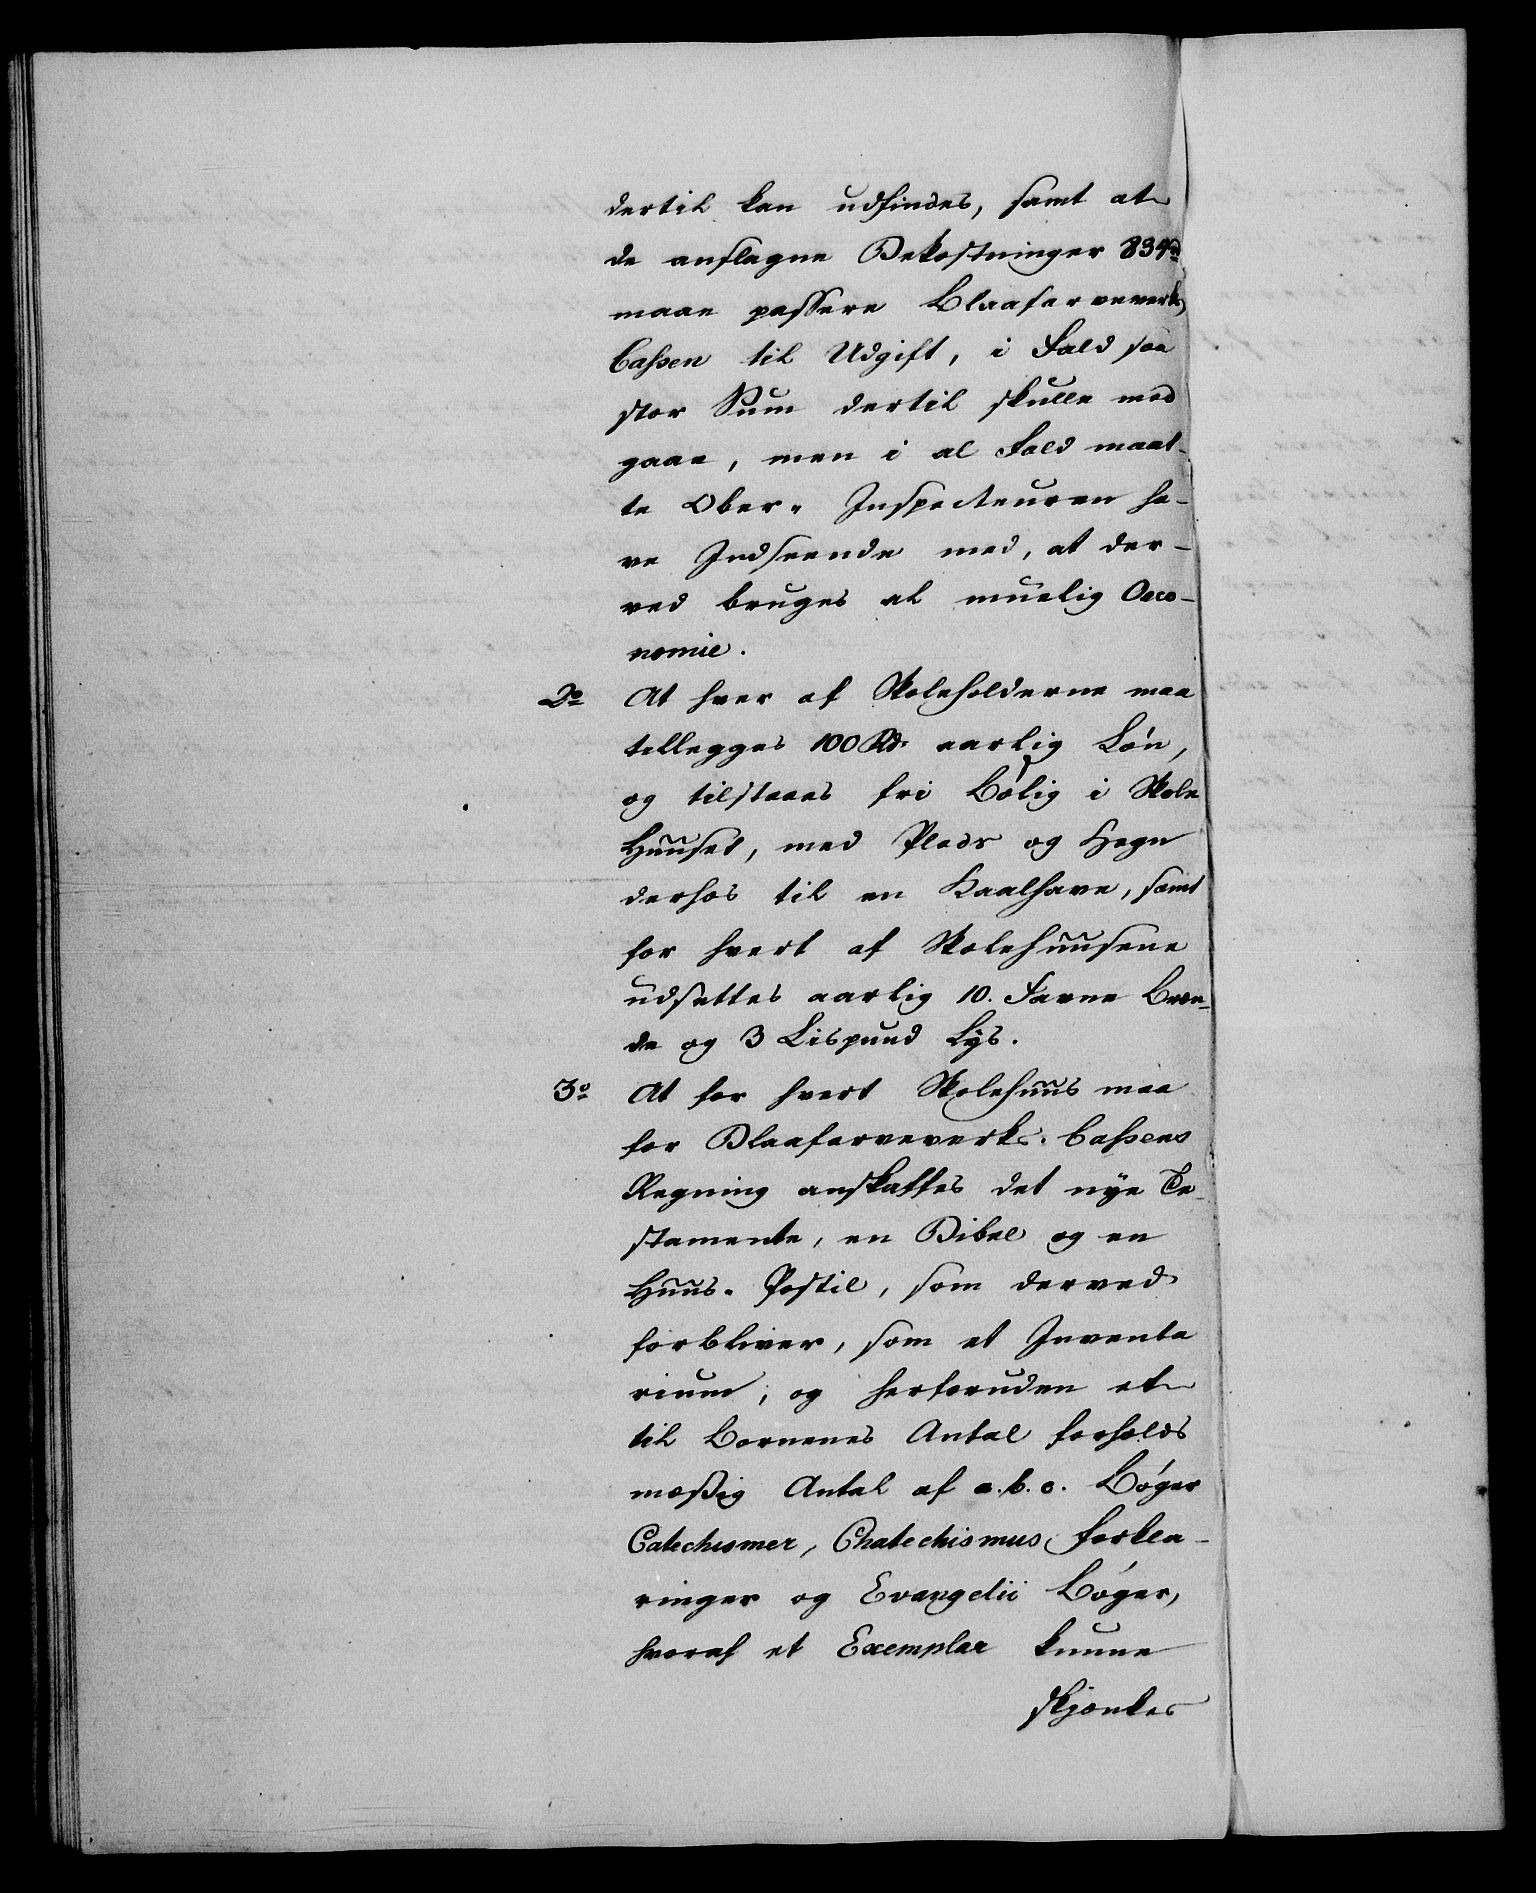 dertil kan udfindes, samt at
de anslagne Bekostninger 834 rd
maae passere Blaafarveverks
Cassen til Udgift, i Fald saa
stor Sum dertil skulle med
gaae, men i al Fald maat-
te Ober- Inspecteuren ha-
ve Indseende med, at der-
ved bruges al muelig Oeco-
nomie.
2o At hver af Skoleholderne maa
tillegges 100 Rd. aarlig Løn,
og tilstaaes fri Bolig i Skole
Huuset, med Plads og Hegn
derhos til en Kaalhave, samt
for hvert af Skolehuusene
udsettes aarlig 10. Favne Bræn-
de og 3 Lispund Lys.
3o At for hvert Skolehuus maa
for Blaafarveverks. Cassens
Regning anskaffes det nye Te-
stamente, en Bibel og en
Huus- Postil, som derved
forbliver, som et Inventa
rium; og herforuden et
til Børnenes Antal forholds
mæssig Antal af a.b.c. Bøger
Catechismer, Chatechismus forkla-
ringer og Evangelii Bøger,
hvoraf et Exemplar kunne
skjænkes